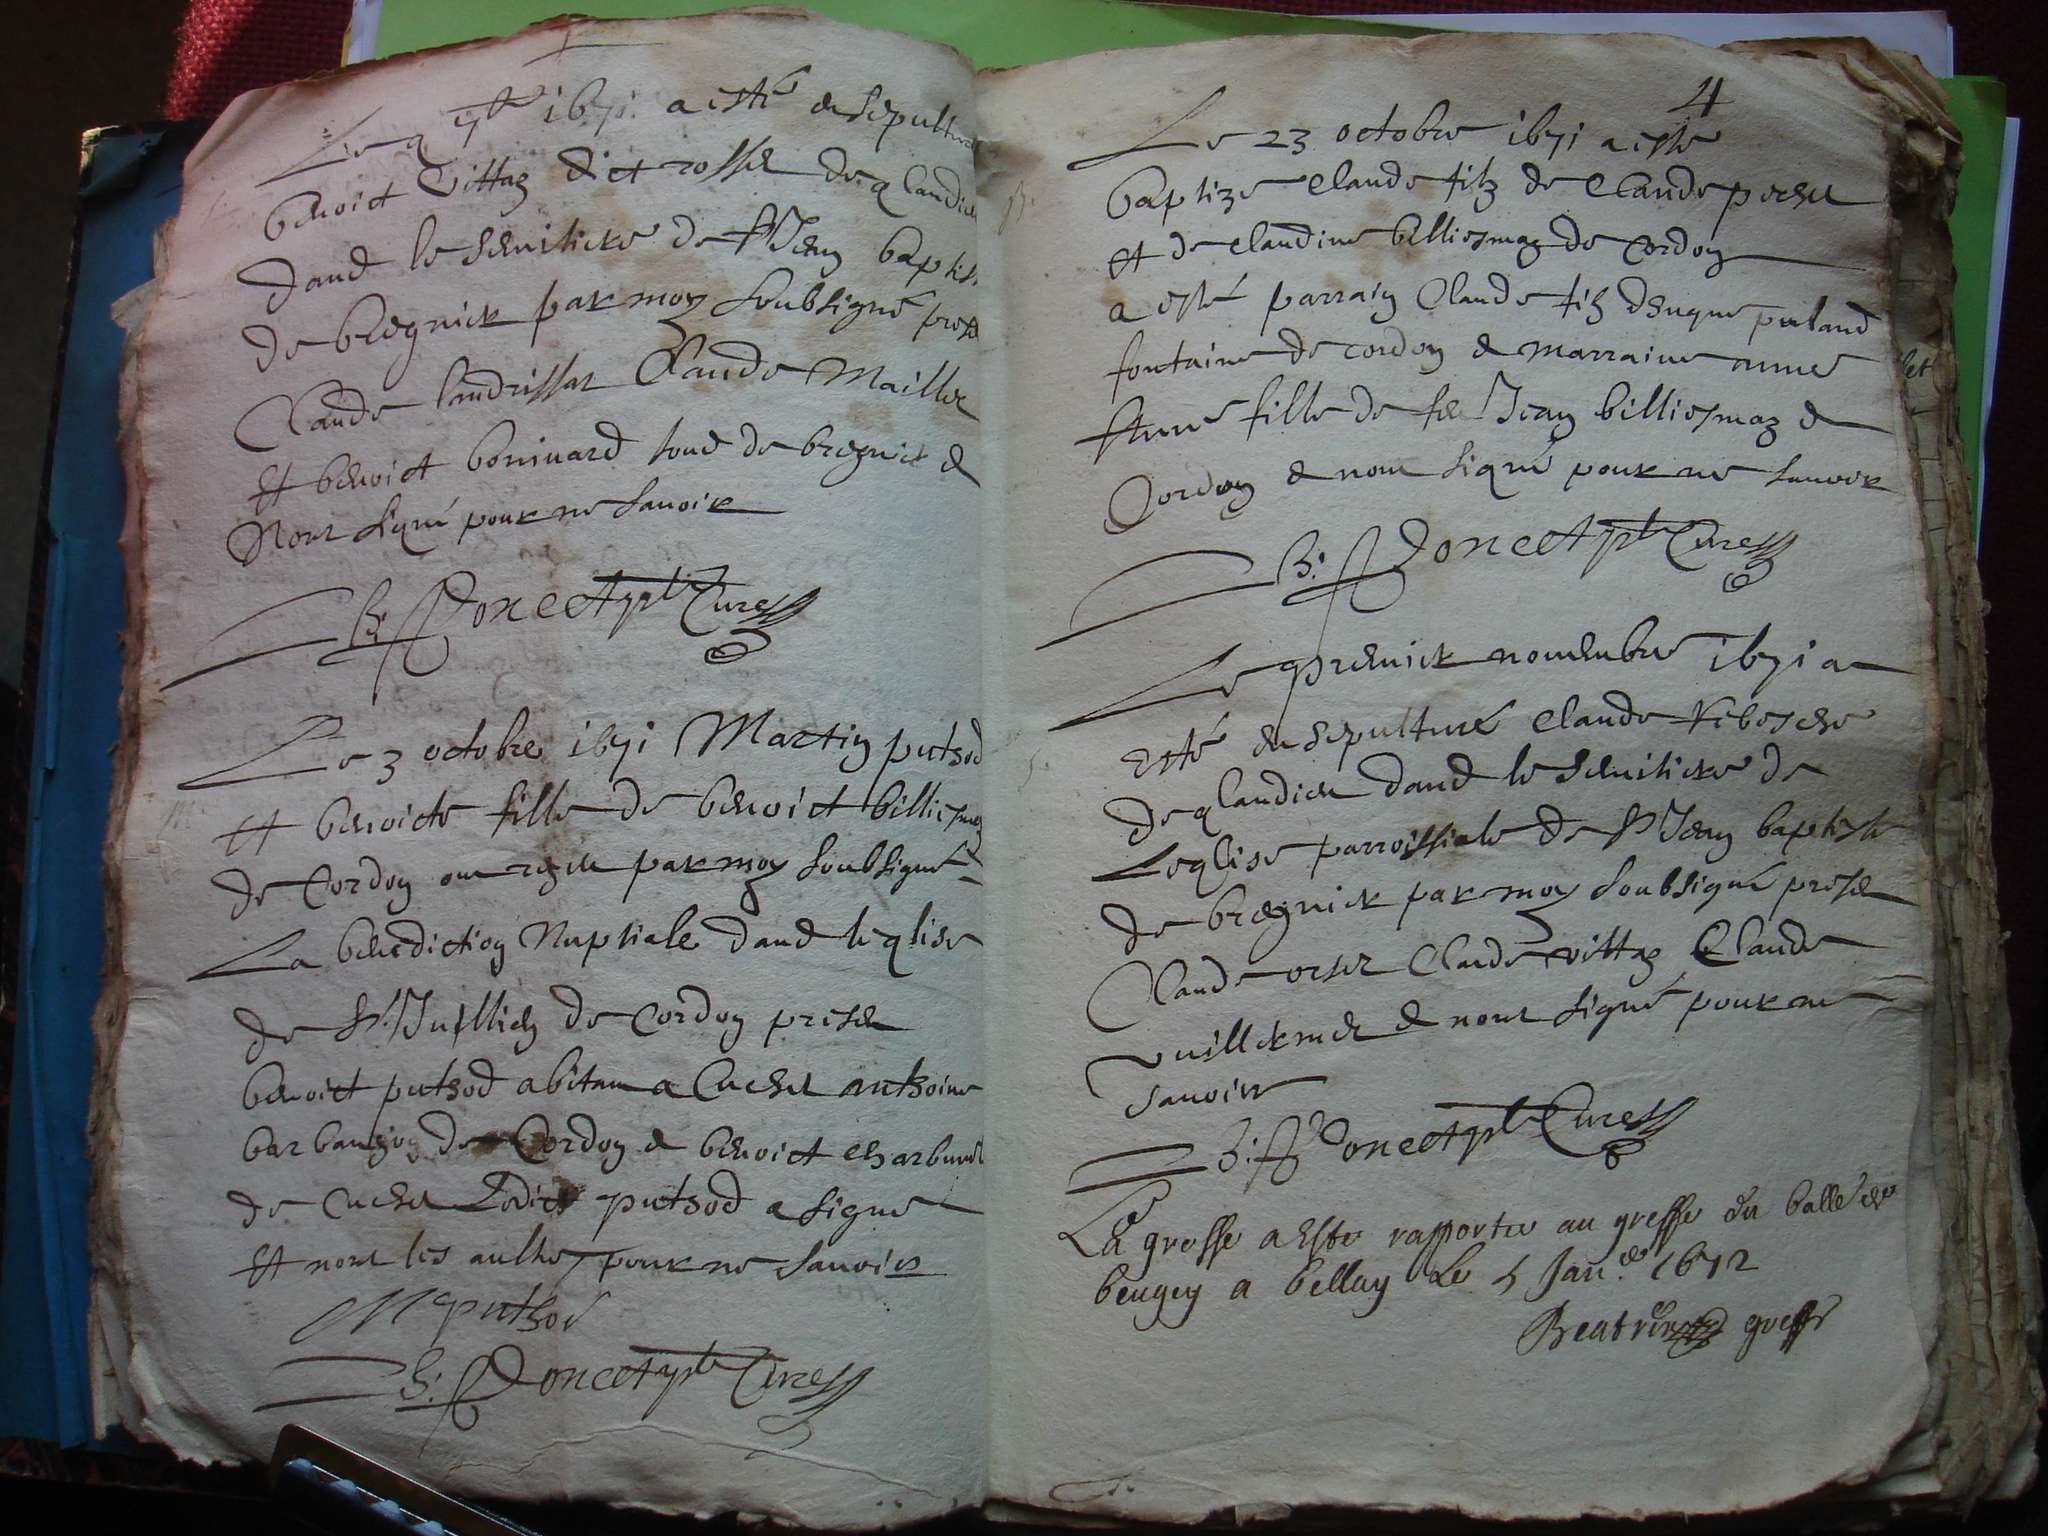 Le 9 7bre 1671 a esté ensepulturé
benoict vittaz dict rosset de glandieu
dans le semitiere de St Jean baptiste
de bregnier par moy soubsigné presen
Claude landrissat Claude Maillet
et benoict bonivard tous de bregnier &
Nont signé pour ne savoir
B. Doncet pbr Cure
Le 3 octobre 1671 Martin puthod
et benoicte fille de benoict billiesmaz
de Cordon ont reseu par moy soubsigné
La benediction Nuptiale dans leglise
de St Jullien de Cordon presen
benoict puthod abitant a Cuchet anthoine
de Cordon & benoict
de Cuchet Ledict puthod a signé
et nont les aultres pour ne savoir
M puthod
B. Doncet pbr Cure
4
Le 23 octobre 1671 a este
baptize Claude filz de Claude pochet
et de Claudine billiesmaz de Cordon
a esté parrain Claude filz
fontaine de cordon & marraine
Anne fille de feu Jean billiesmaz de
Cordon & nont signé pour ne savoir
B. Doncet pbr Cure
Le premier novembre 1671 a
Esté ensepulturé Claude
de glandieu dans le semitiere de
Leglise parroissiale de St Jean baptiste
de bregnier par moy soubsigné presen
Claude orset Claude vittaz Claude
vuillermet & nont signé pour ne
savoir
B. Doncet pbr Cure
La grosse a Este rapportee au greffe du
beugey a bellay Le 5 Janer 1672
greffr